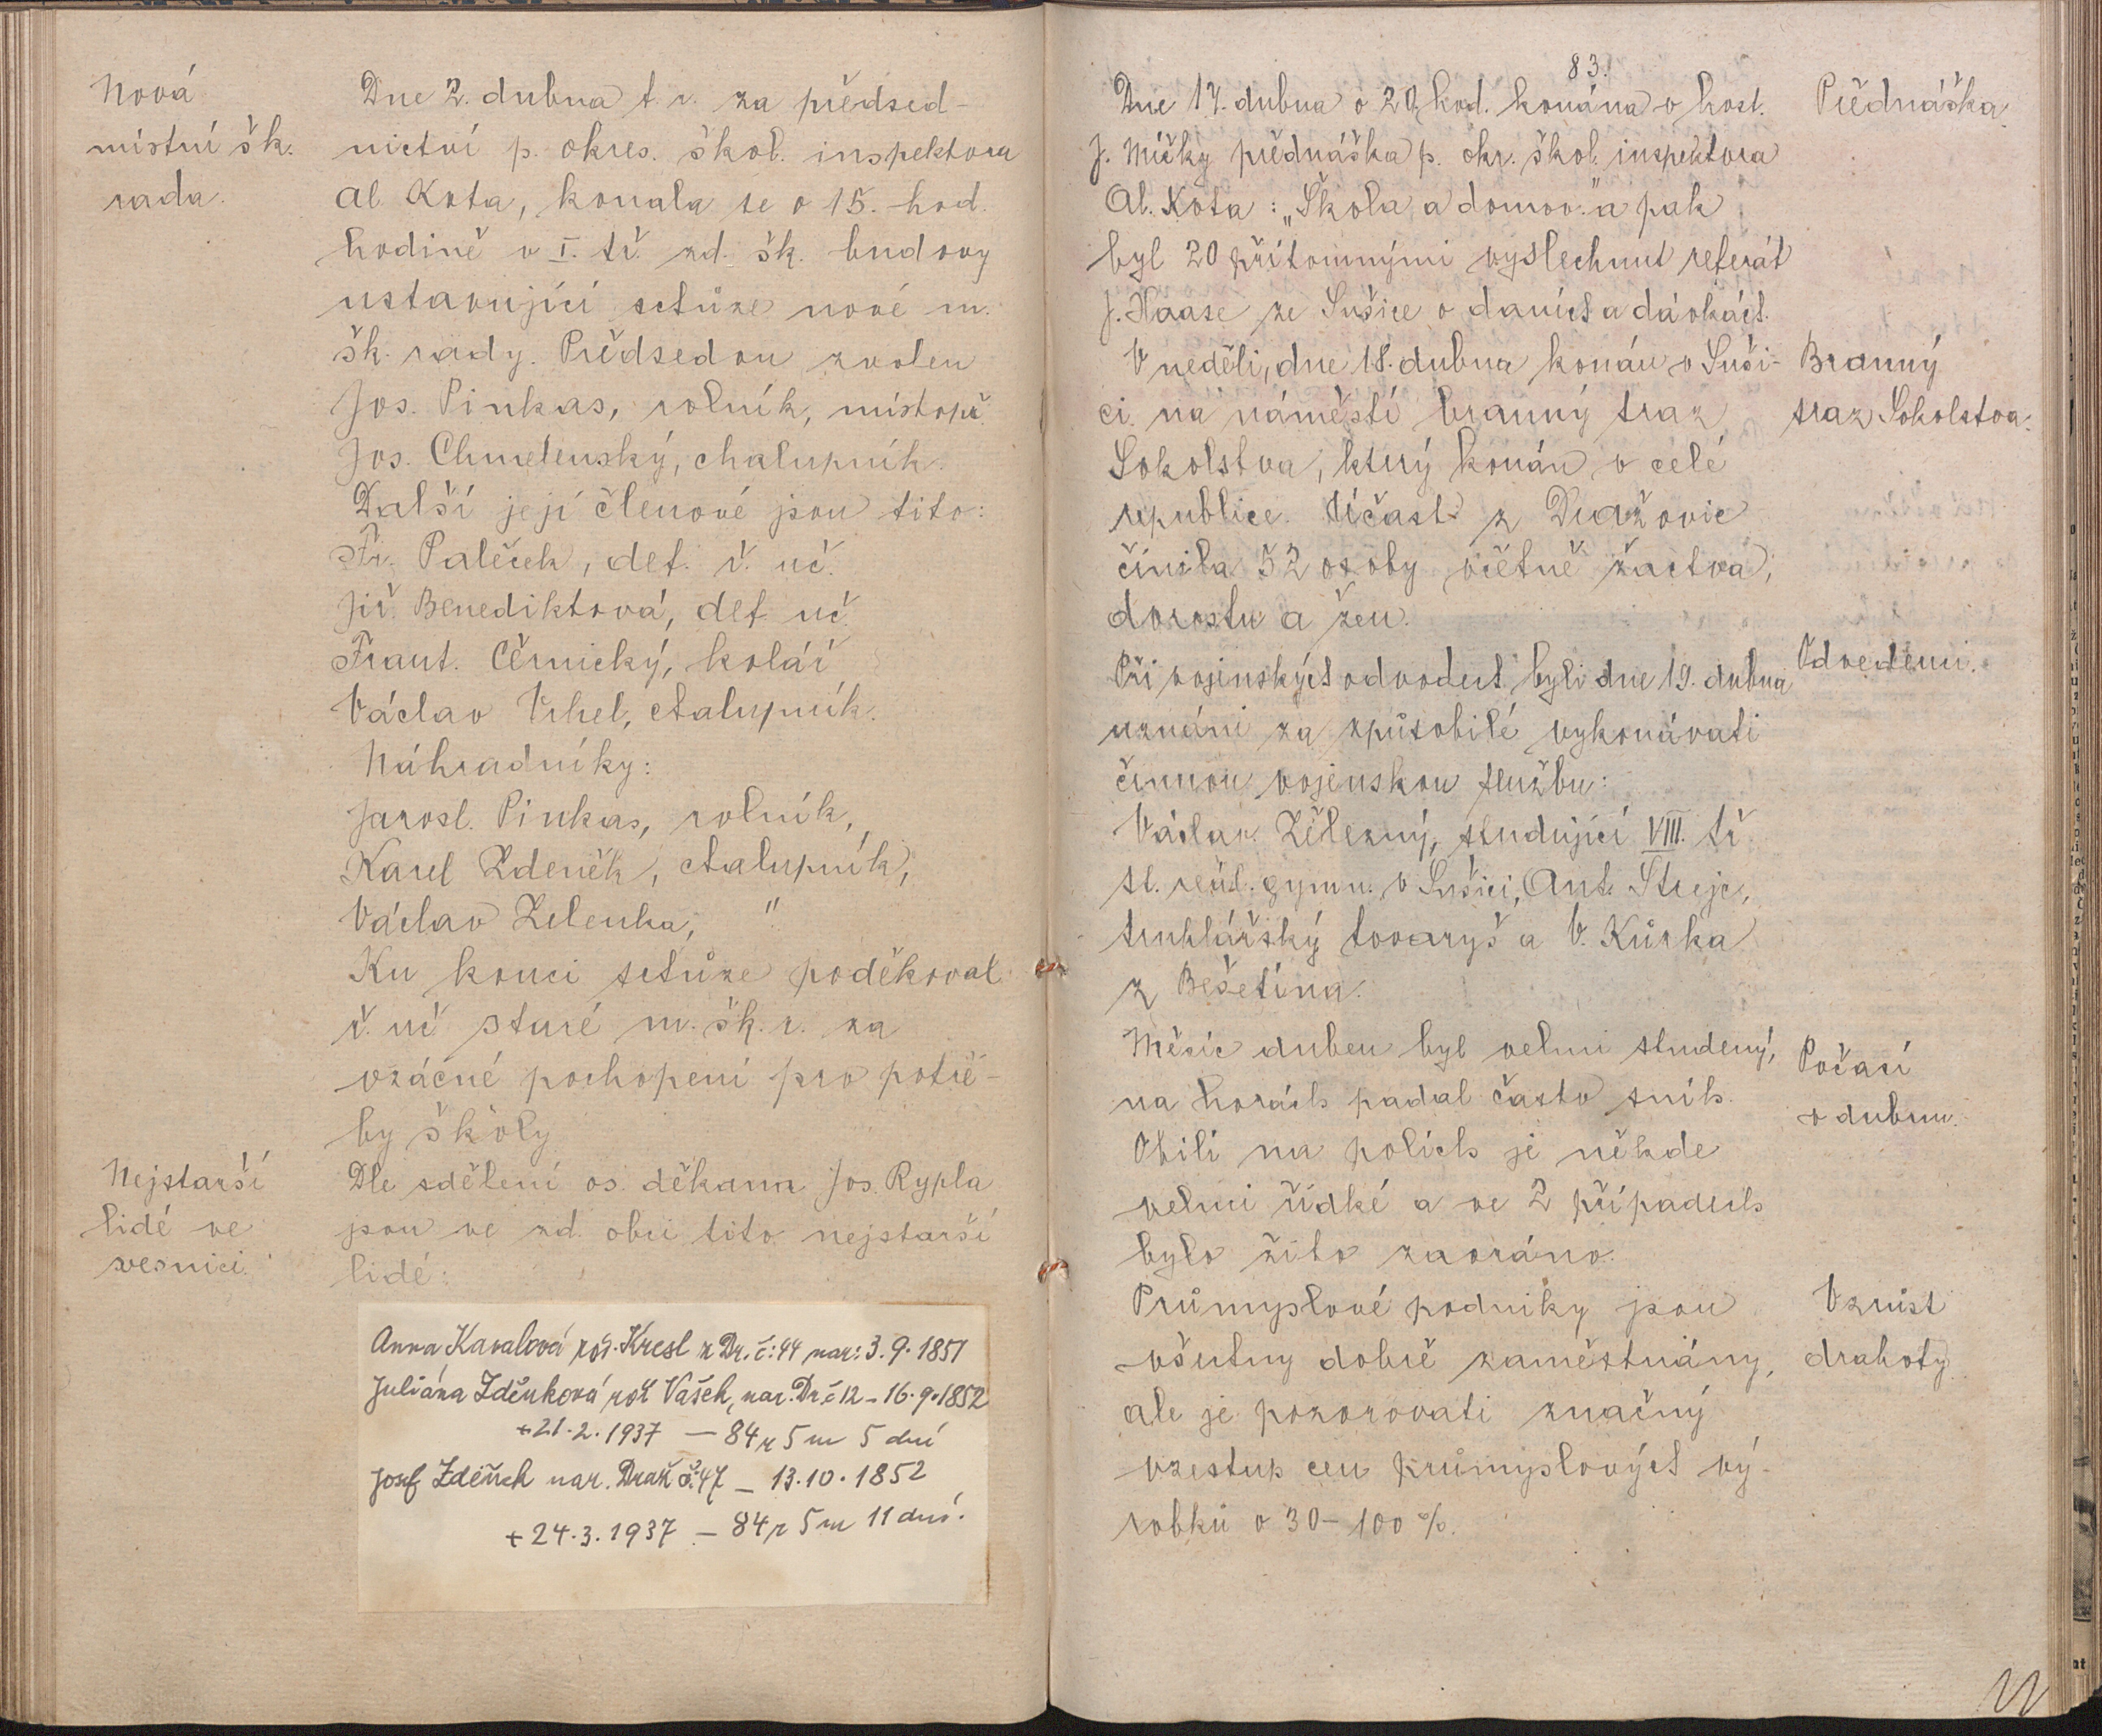 Nová
místní šk.
rada.
Dne 2. dubna t. r. za předsed-
nictví p. okres. škol. inspektora
Al. Kota, konala se o 15. hod.
hodině v I. tř. zd. šk. budovy
ustavující schůze nové m.
šk. rady. Předsedou zvolen
Jos. Pinkas, rolník, místopř.
Jos. Chmelenský, chalupník.
Další její členové jsou tito:
Fr. Paleček, def. ř. uč.
Jiř. Benediktová, def. uč.
Frant. Černický, kolář
Václav Vrhel, chalupník.
Náhradníky:
Jarosl. Pinkas, rolník,
Karel Zdeněk, chalupník,
Václav Zelenka, "
Ku konci schůze poděkoval
ř. uč staré m. šk. r. za
vzácné pochopení pro potře-
by školy
Nejstarší
lidé ve
vesnici.
Dle sdělení os. děkana Jos. Rypla
jsou ve zd. obci tito nejstarší
lidé:
Anna Kavalová roz. Kresl z Dr. č: 44 nar: 3. 9. 1851
Juliána Zděnková roz Vašek, nar. Dr. č 12 - 16. 9. 1852
+ 21. 2. 1937 — 84 r 5 m 5 dní
Josef Zděnek nar. Draž č. 47 — 13. 10. 1852
+ 24. 3. 1937 — 84 r 5 m 11 dní.
83.
Dne 17. dubna o 20 hod. konána v host.
J. Mičky přednáška p. okr. škol. inspektora
Al. Kota: „Škola a domov." a pak
byl 20 přítomnými vyslechnut referát
J. Haase ze Sušice o daních a dávkách.
Přednáška.
V neděli, dne 18. dubna konán v Suši-
ci na náměstí branný sraz
Sokolstva, který konán v celé
republice. Účast z Dražovic
činila 52 osoby včetně žactva,
dorostu a žen.
Branný
sraz Sokolstva.
Při vojenských odvodech byli dne 19. dubna
uznáni za způsobilé vykonávati
činnou vojenskou službu:
Václav Železný, studující VIII. tř
st. reál. gymn. v Sušici, Ant. Strejc,
truhlářský tovaryš a V. Kůrka
z Bešetína.
Odvedeni.
Měsíc duben byl velmi studený,
na horách padal často sníh.
Obilí na polích je někde
velmi řídké a ve 2 případech
bylo žito zaoráno.
Počasí
v dubnu.
Průmyslové podniky jsou
všechny dobře zaměstnány,
ale je pozorovati značný
vzestup cen průmyslových vý-
robků o 30 - 100 %.
Vzrůst
drahoty